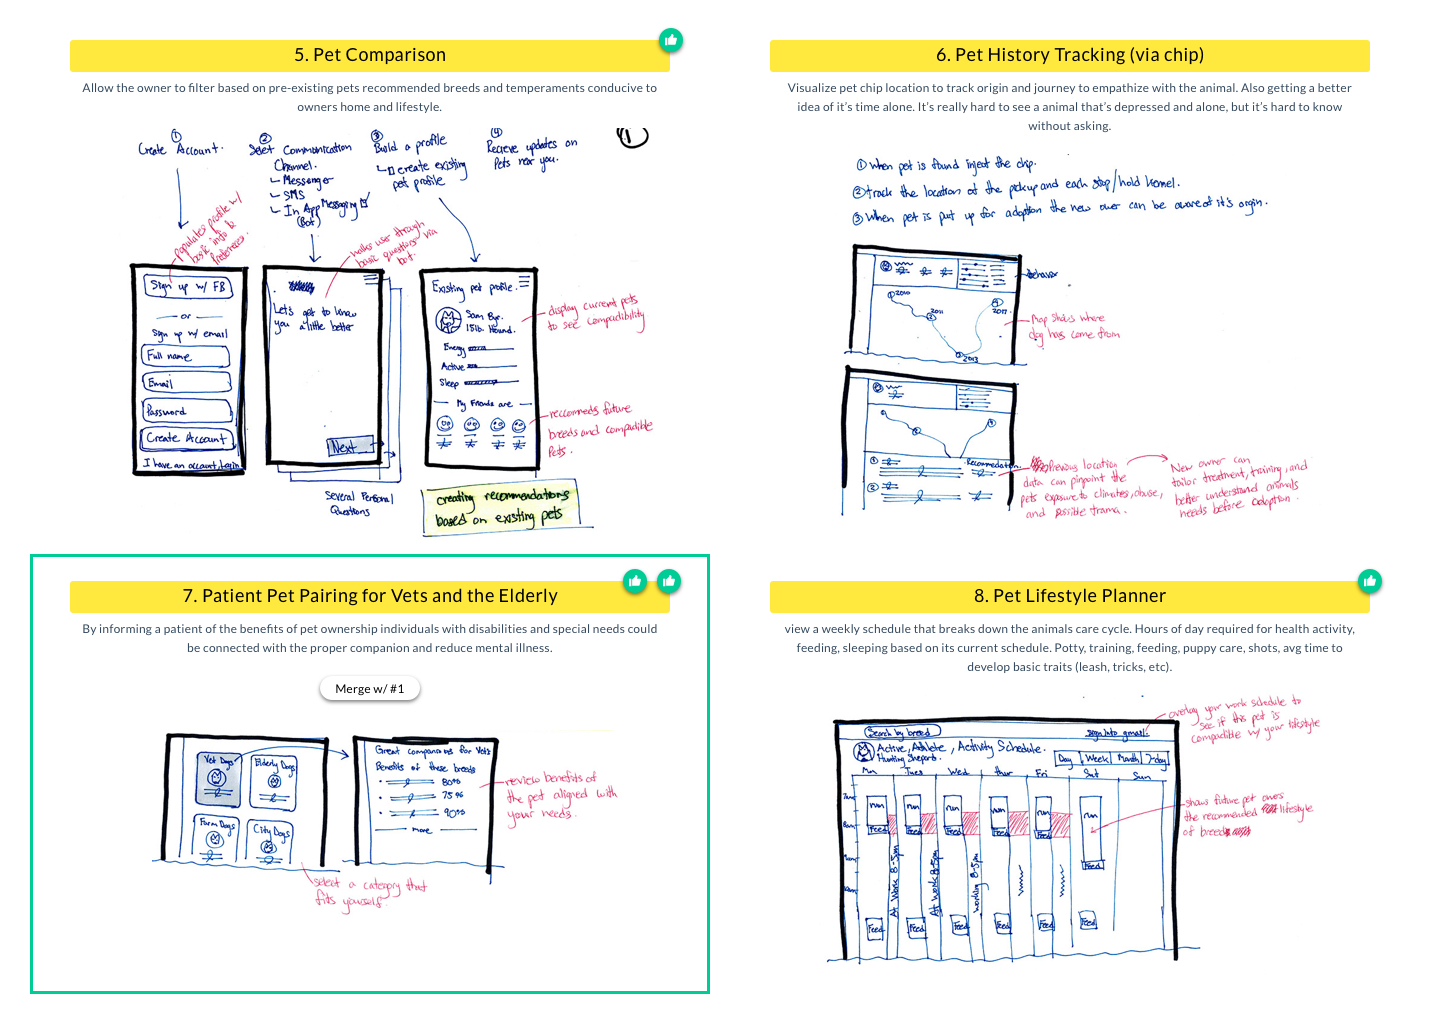 5. Pet Comparison
Allow the owner to filter based on pre-existing pets recommended breeds and temperaments conducive to
owners home and lifestyle.
① Create Account.
② Select Communication
Channel.
Messenger
SMS
In App Messaging
(Bot)
③ Build a profile
create existing
pet profile
④ Recieve updates on
Pets near you.
populates profile w/
basic info &
Preferences.
walks user through
basic questions via
bot.
Sign up w/ FB
or
Sign up w/ email
Full name
Email
Password
Create Account
I have an account, login
Let's get to know
you a little better
Next
Several Personal
Questions
Existing pet profile.
Sam Bye.
15lb. Hound.
Energy
Active
Sleep
My Friends are
display current pets
to see compadibility
reccomeds future
breeds and compadible
Pets.
creating recommendations
based on existing pets
6. Pet History Tracking (via chip)
Visualize pet chip location to track origin and journey to empathize with the animal. Also getting a better
idea of it's time alone. It's really hard to see a animal that's depressed and alone, but it's hard to know
without asking.
① When pet is found inject the chip.
② track the location of the pickup and each stop/hold Kernel.
③ When pet is put up for adoption the new owner can be aware of it's orgin.
Behavor
2010
2011
2013
2017
Map shows where
dog has come from
Recommedation.
①
②
Previous location
data can pinpoint the
pets exposure to climates, abuse,
and possible trama.
New owner can
tailor treatment, training, and
better understand animals
needs before adoption.
7. Patient Pet Pairing for Vets and the Elderly
By informing a patient of the benefits of pet ownership individuals with disabilities and special needs could
be connected with the proper companion and reduce mental illness.
Merge w/ #1
Vet Dogs
Elderly Dogs
Farm Dogs
City Dogs
Great companions for Vets
Benefits of these breeds
80%
75%
90%
more
review benefits of
the pet aligned with
your needs.
select a category that
fits yourself.
8. Pet Lifestyle Planner
view a weekly schedule that breaks down the animals care cycle. Hours of day required for health activity,
feeding, sleeping based on its current schedule. Potty, training, feeding, puppy care, shots, avg time to
develop basic traits (leash, tricks, etc).
Search by breed
sign into gmail
Active, Athlete, Activity Schedule.
Hunting Sheperd.
Day Week Month 7-day
Mon Tues Wed Thur Fri Sat Sun
7am
8am
run run run run run run
Feed Feed Feed Feed Feed
Feed
At Work 8-5pm
At Work 8-5pm
working 8-5pm
Feed Feed Feed Feed Feed Feed
overlay your work schedule to
see if this pet is
compatible w/ your lifestyle
shows future pet owners
the recommended lifestyle
of breed